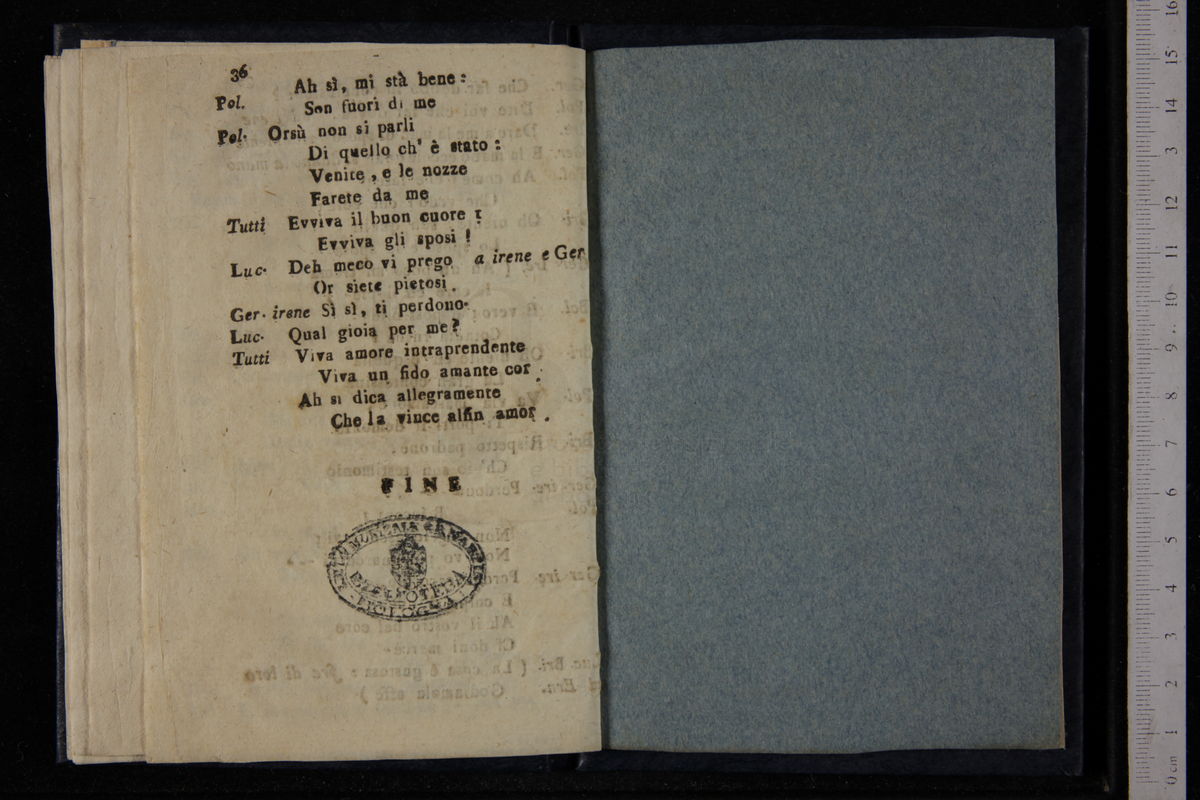 36
Ah sì, mi stà bene:
Pol. Son fuori di me
Pol. Orsù non si parli
Di quello ch' è stato:
Venite, e le nozze
Farete da me
Tutti Evviva il buon cuore !
Evviva gli sposi !
Luc. Deh meco vi prego a irene e Ger
Or siete pietosi.
Ger. irene Sì sì, ti perdono.
Luc. Qual gioia per me?
Tutti Viva amore intraprendente
Viva un fido amante cor.
Ah si dica allegramente
Che la vince alfin amor.
FINE
BIBLIOTECA
BOLOGNA
0 cm 1 2 3 4 5 6 7 8 9 10 11 12 13 14 15 16